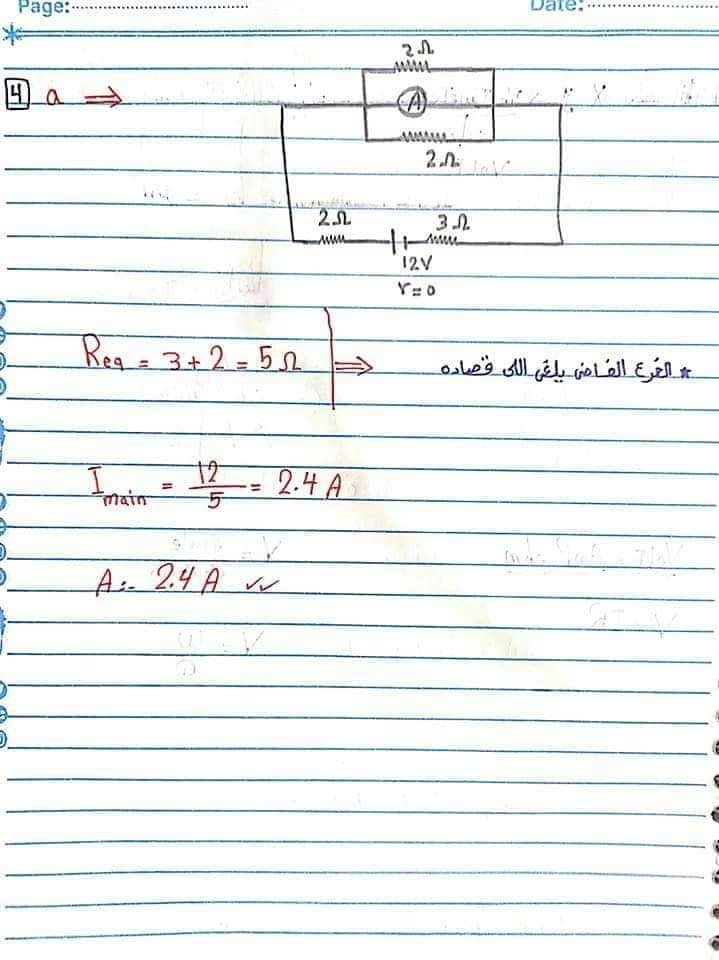 Page: Date:
2Ω
4 a ⇒
A
2Ω
2Ω 3Ω
12V
r=0
Req = 3+2 = 5Ω ⇒ * الفرع الفاضى يلغى اللى قصاده
I main = 12/5 = 2.4 A
A:- 2.4 A ✓✓